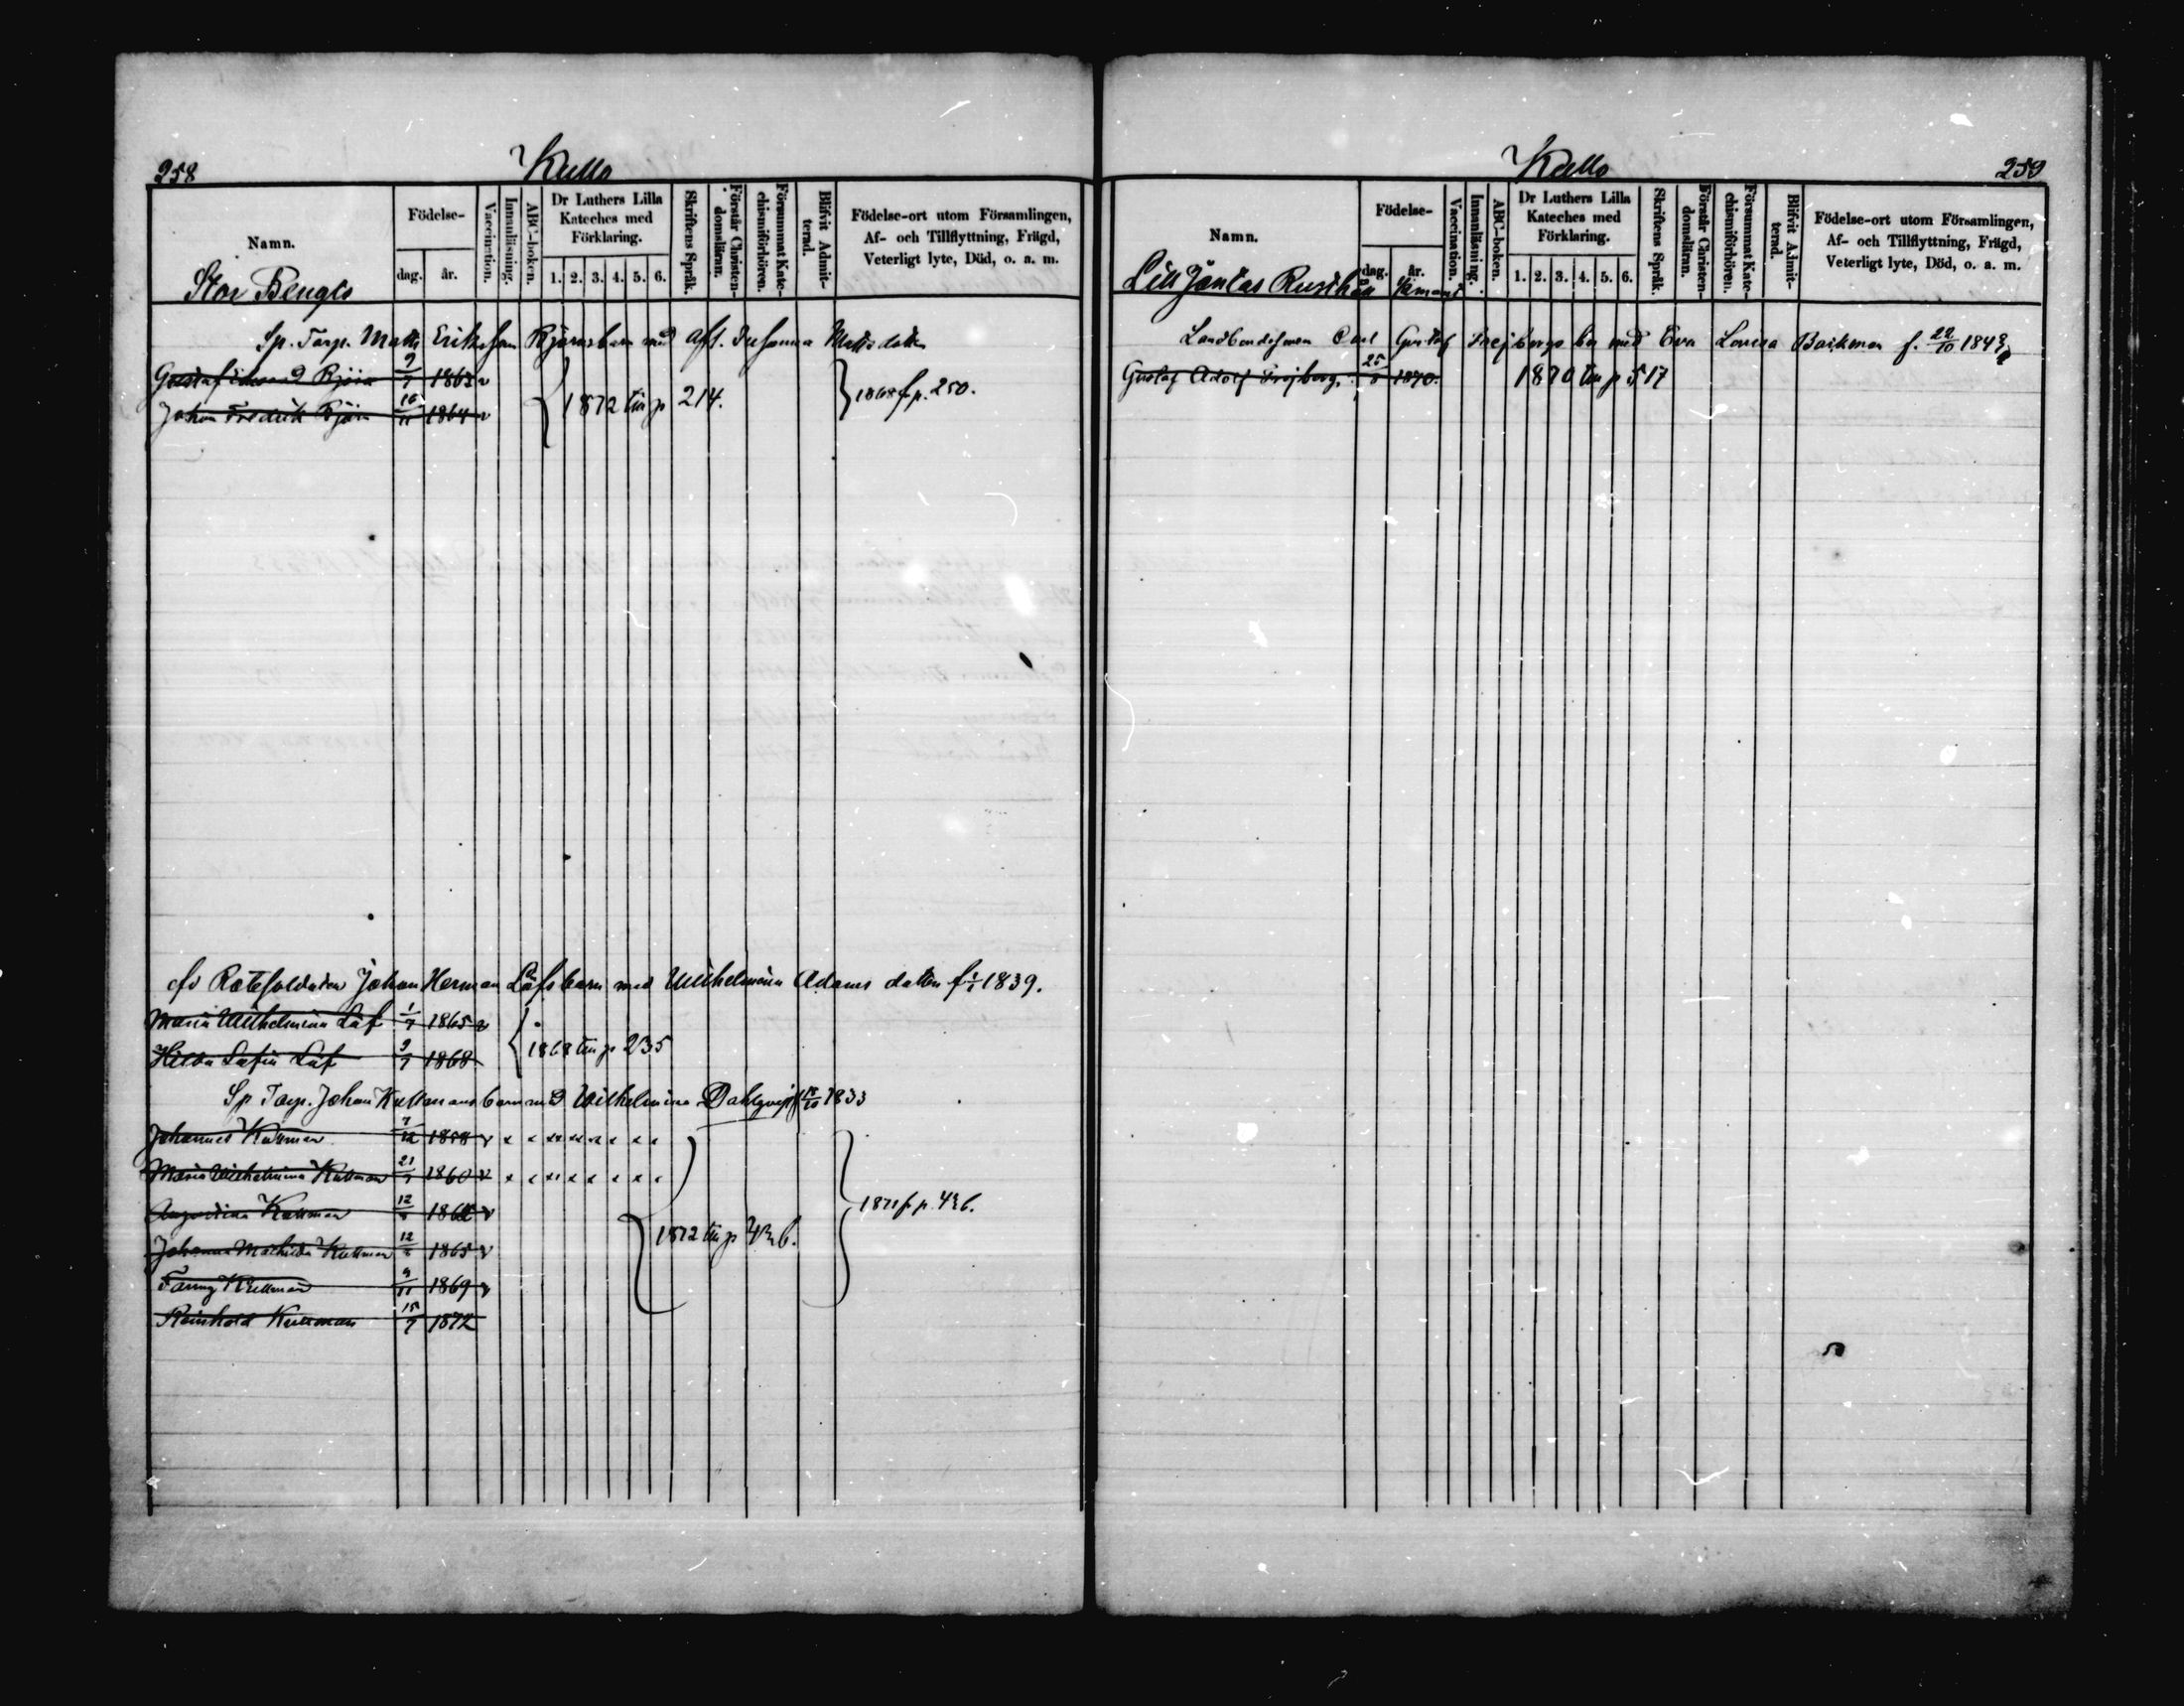 258
Kullo
Namn.
Födelse-
dag.
år.
Vaccination.
Innanläsning.
ABC-boken.
Dr Luthers Lilla
Kateches med
Förklaring.
1. 2. 3. 4. 5. 6.
Skriftens Språk.
Förstår Christen-
domsläran.
Försummat Kate-
chismiförhören.
Blifvit Admit-
terad.
Födelse-ort utom Församlingen,
Af- och Tillflyttning, Frägd,
Veterligt lyte, Död, o. a. m.
Stor Bengts
Sp. Torp. Matts Eriksson Björns barn med Johanna Mattsdotter
Gustaf Edvard Björn 9/7 1863 v
Johan Fredrik Björn 16/11 1864 v
1872 till p 214.
1868 fr p. 250.
Rotesoldaten Johan Herman Löfs barn med Wilhelmina Adams dotter f 1839.
Maria Wilhelmina Löf 1/7 1865 v
Hilda Sofia Löf 9/7 1868
1868 till p 235
Sp Torp. Johan Kullmans barn med Wilhelmina Dahlqvist 1833
Johannes Kullman 1858 v
Maria Wilhelmina Kullman 21 1860 v
Kullman 12 v
Johanna Mathilda Kullman 12 1865 v
Fanny Kullman 9/11 1869 v
Reinhold Kullman 15/7 1872
1872 till p 436.
1871 fr p. 436.
Kullo
259
Namn.
Födelse-
dag.
år.
Vaccination.
Innanläsning.
ABC-boken.
Dr Luthers Lilla
Kateches med
Förklaring.
1. 2. 3. 4. 5. 6.
Skriftens Språk.
Förstår Christen-
domsläran.
Försummat Kate-
chismiförhören.
Blifvit Admit-
terad.
Födelse-ort utom Församlingen,
Af- och Tillflyttning, Frägd,
Veterligt lyte, Död, o. a. m.
Lill Jäntas
Carl Gustaf Frejbergs barn med Eva Lovisa Backman f. 22/10 1843
Gustaf Adolf Frejberg. 25/8 1870.
1870 till p 517